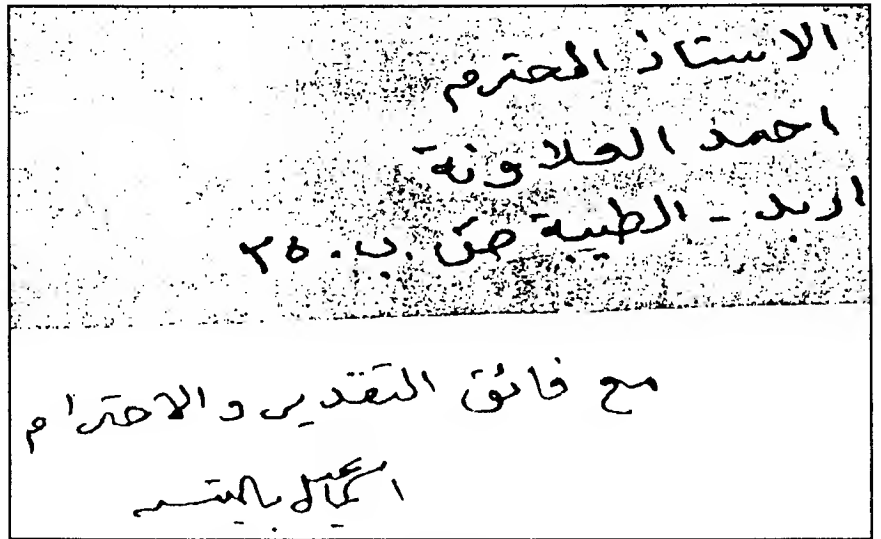 الاستاذ المحترم
احمد العلاونة
اربد - الطيبة ص.ب. ٣٥
مع فائق التقدير و الاحترام
اسماعيل